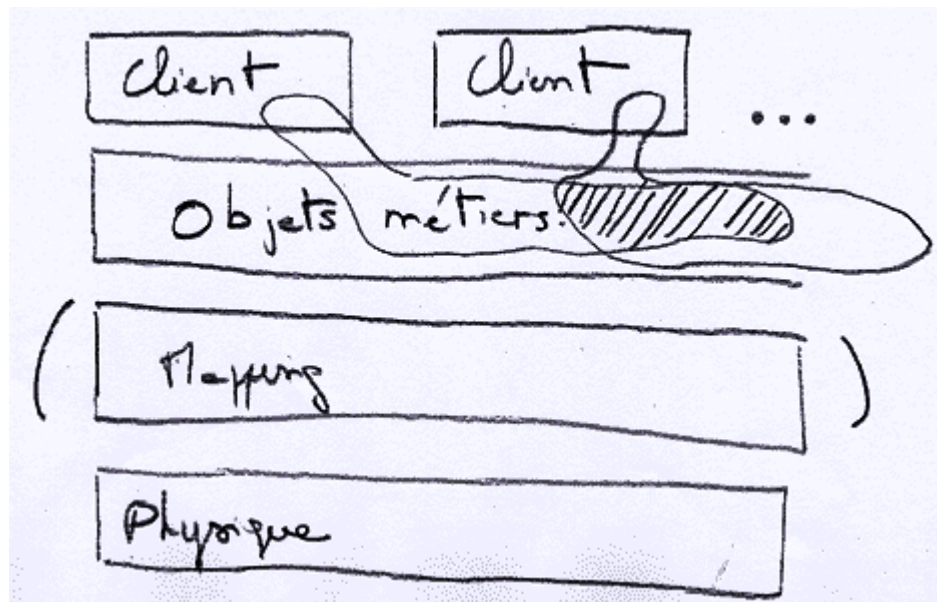 Client Client ...
Objets métiers
( Mapping )
Physique